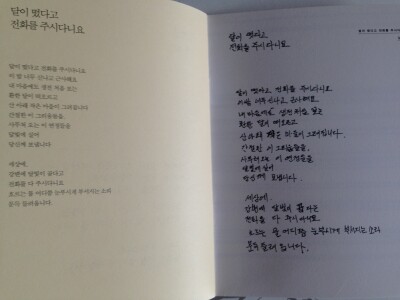 달이 떴다고
전화를 주시다니요
달이 떴다고 전화를 주시다니요
이 밤 너무 신나고 근사해요
내 마음에도 생전 처음 보는
환한 달이 떠오르고
산 아래 작은 마을이 그려집니다
간절한 이 그리움들을,
사무쳐 오는 이 연정들을
달빛에 실어
당신께 보냅니다
세상에,
강변에 달빛이 곱다고
전화를 다 주시다니요
흐르는 물 어디쯤 눈부시게 부서지는 소리
문득 들려옵니다
달이 떴다고
전화를 주시다니요
달이 떴다고 전화를 주시다니요
이 밤 너무 신나고 근사해요
내 마음에도 생전 처음 보는
환한 달이 떠오르고
산 아래 작은 마을이 그려집니다.
간절한 이 그리움들을,
사무쳐 오는 이 연정들을
달빛에 실어
당신께 보냅니다.
세상에,
강변에 달빛이 곱다고
전화를 다 주시다니요
흐르는 물 어디쯤 눈부시게 부서지는 소리
문득 들려옵니다.